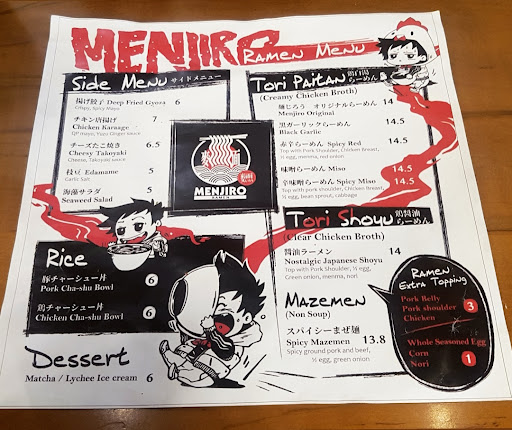 MENJIRO
RAMEN MENU
Side Menu サイドメニュー
揚げ餃子 Deep Fried Gyoza 6
Crispy, Spicy Mayo
チキン唐揚げ 7
Chicken Karaage
QP mayo, Yuzu Ginger sauce
チーズたこ焼き 6.5
Cheesy Takoyaki
Cheese, Takoyaki sauce
枝豆 Edamame 5
Garlic Salt
海藻サラダ 5
Seaweed Salad
Rice
豚チャーシュー丼 6
Pork Cha-shu Bowl
鶏チャーシュー丼 6
Chicken Cha-shu Bowl
Dessert
Matcha / Lychee Ice cream 6
MENJIRO
RAMEN
Tori Paitan 鶏白湯らーめん
(Creamy Chicken Broth)
麺じろう オリジナルらーめん 14
Menjiro Original
黒ガーリックらーめん 14.5
Black Garlic
赤辛らーめん Spicy Red 14.5
Top with Pork Shoulder, Chicken Breast,
½ egg, menma, red onion
味噌らーめん Miso 14.5
辛味噌らーめん Spicy Miso 14.5
Top with Pork Shoulder, Chicken Breast,
½ egg, bean sprout, cabbage
Tori Shoyu 鶏醤油らーめん
(Clear Chicken Broth)
醤油ラーメン 14
Nostalgic Japanese Shoyu
Top with Pork Shoulder, ½ egg,
Green onion, menma, nori.
Mazemen
(Non Soup)
スパイシーまぜ麺
Spicy Mazemen 13.8
Spicy ground pork and beef,
½ egg, green onion
Ramen
Extra Topping
Pork Belly
Pork shoulder 3
Chicken
Whole Seasoned Egg
Corn 1
Nori